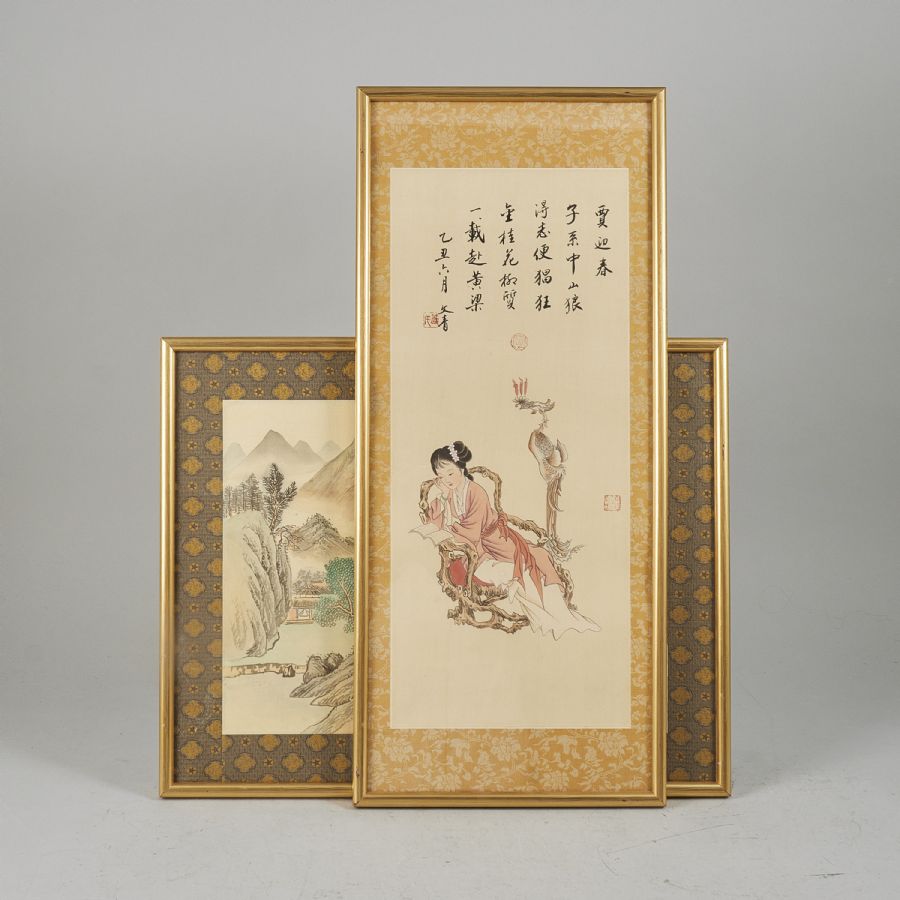 賈迎春
子系中山狼
得志便猖狂
金桂花柳質
一載赴黄梁
乙丑六月 文青